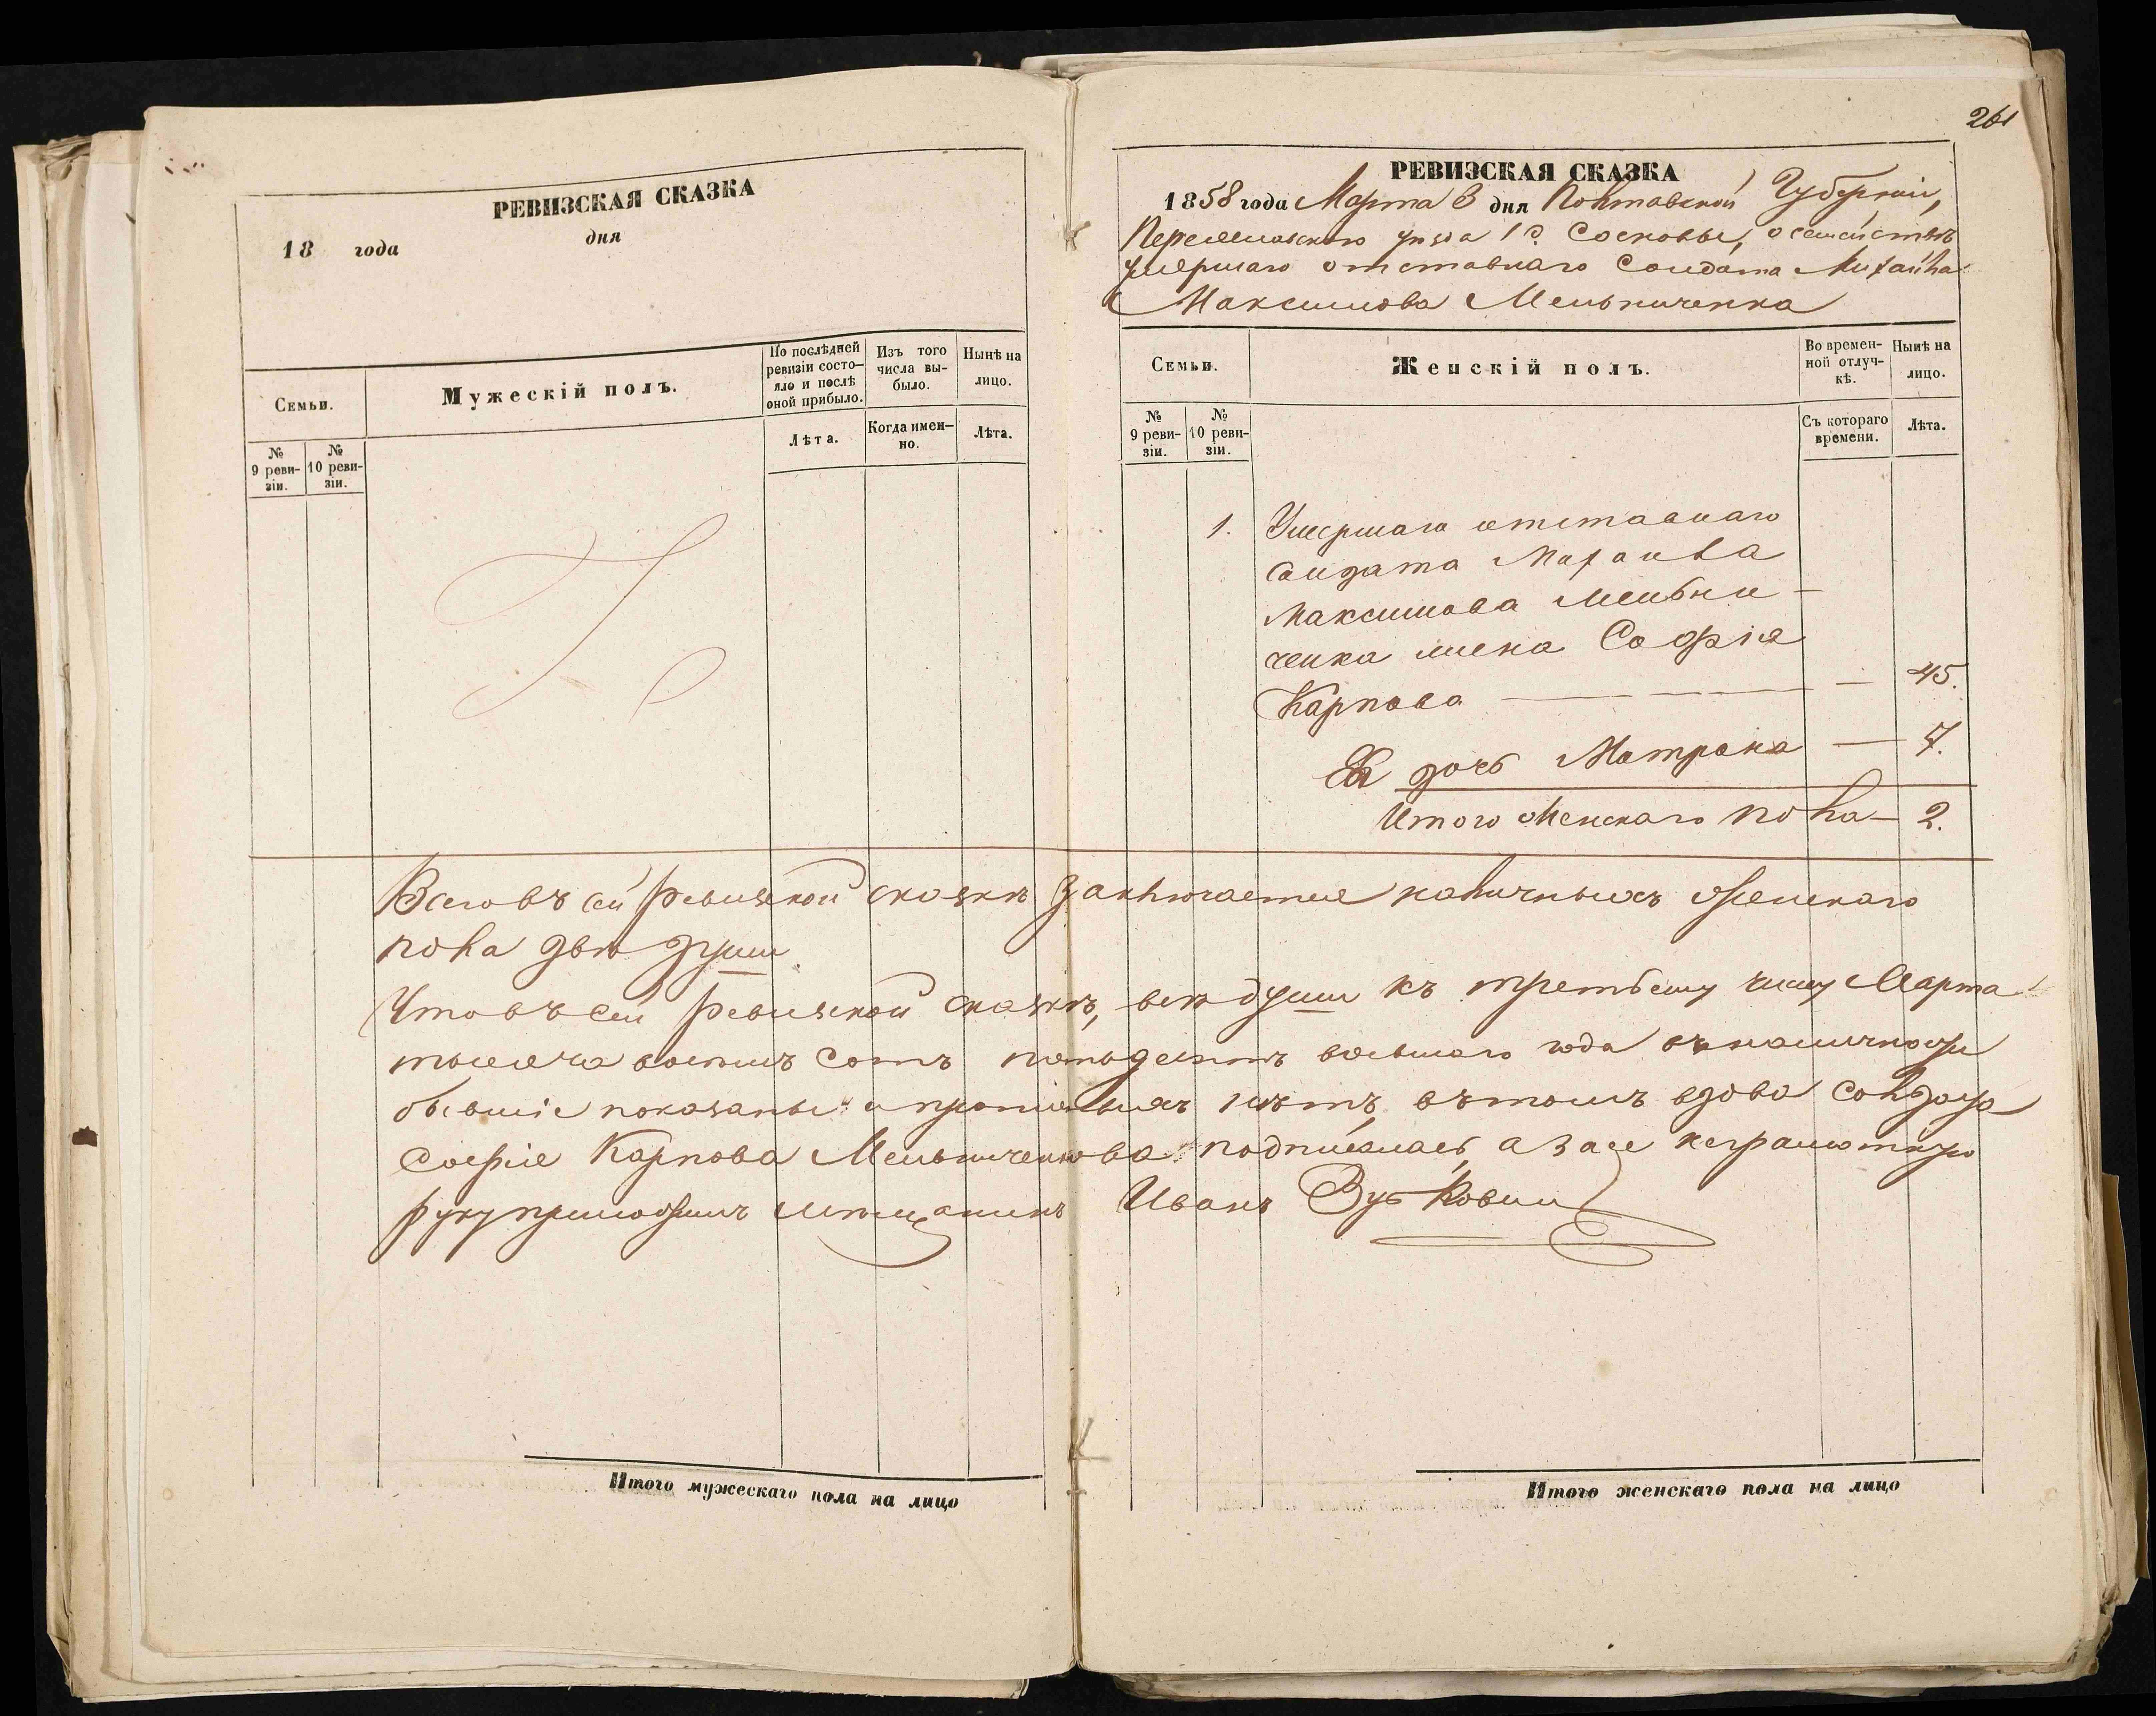 РЕВИЗСКАЯ СКАЗКА
18 года дня
Семьи.
Мужескій полъ.
По послѣдней ревизіи состояло и послѣ оной прибыло.
Изъ того числа выбыло.
Нынѣ на лицо.
№ 9 ревизіи.
№ 10 ревизіи.
Лѣта.
Когда именно.
Лѣта.
261
РЕВИЗСКАЯ СКАЗКА
1858 года Марта 3 дня Полтавской Губерніи,
Переяславскаго уѣзда с. Сосновы, о семействѣ
умершаго отставнаго Солдата Михаила
Максимова Мельниченка
Семьи.
Женскій полъ.
Во временной отлучкѣ.
Нынѣ на лицо.
№ 9 ревизіи.
№ 10 ревизіи.
Съ котораго времени.
Лѣта.
1. Умершаго отставнаго
солдата Михаила
Максимова Мельни-
ченка жена Софія
Карпова — 45.
Ея дочь Матрона — 7.
Итого женскаго пола — 2.
Всего въ сей ревизской сказкѣ заключается наличныхъ женскаго
пола двѣ души.
Что въ сей ревизской сказкѣ, всѣ души къ третьему числу Марта
тысяча восемъ сотъ пятьдесятъ восьмаго года въ наличности
бывшіе показаны и пропискыхъ нѣтъ, въ томъ вдова солдата
Софія Карпова Мельниченкова подписалась, а за ее неграмотную
руку приложилъ мѣщанинъ Иванъ
Итого мужескаго пола на лицо
Итого женскаго пола на лицо